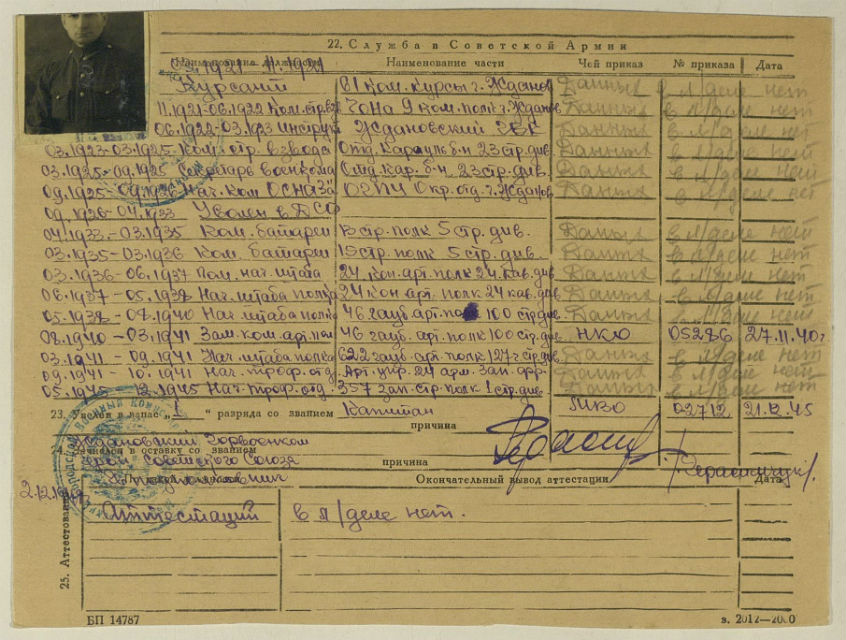 22. Служба в Советской Армии
Наименование должности Наименование части Чей приказ № приказа Дата
03.1921 11.1921 Курсант 61 Ком. курсы г. Жданов Данных в л/деле нет
11.1921-06.1922 Ком. отр. ЧОНа 9 Ком. полк г. Жданов Данных в л/деле нет
06.1922-03.1923 Инструк Ждановский Данных в л/деле нет
03.1923-03.1925 Ком. отр. взвода Отд. Караульн. б-н 23 стр. див. Данных в л/деле нет
03.1925-09.1925 Секретарь военкома Отд. кар. б-н. 23 стр. див. Данных в л/деле нет
09.1925-09.1926 Нач. ком ОСНАЗа ОГПУ Окр. отд. г. Жданов Данных в л/деле нет
09.1926-04.1933 Уволен в
04.1933.-03.1935 Ком. батареи стр. полк 5 стр. див. Данных в л/деле нет
03.1935-03.1936 Ком. батареи стр. полк 5 стр. див. Данных в л/деле нет
03.1936-06.1937 Пом. нач. штаба 24 кон. арт. полк 24. кав. див Данных в л/деле нет
06.1937-05.1938 Нач. штаба полка 24 кон арт. полк 24 кав. див Данных в л/деле нет
05.1938-08.1940 Нач. штаба полка 46 гауб. арт. полк 100 стр. див Данных в л/деле нет
08.1940-03.1941 Зам. ком. арт. пол 46 гауб. арт. полк 100 стр. див НКО 05286 27.11.40г
03.1941-09.1941 Нач. штаба полка 622 гауб. арт. полк 127 стр. див Данных в л/деле нет
09.1941-10.1941 Нач. троф. отд. Арт. упр. 24 арм. Зап. фр. Данных в л/деле нет
05.1945-12.1945 Нач. троф. отд. 357 зап. стр. полк 1 стр. див Данных в л/деле нет
23. Зачислен в запас „1“ разряда со званием Капитан МВО 02712 21.12.45
причина
24. Зачислен в отставку со званием
Ждановский Горвоенком
Герой Советского Союза
причина
Подполковник
Окончательный вывод аттестации Дата
/Герасимчук/.
2.12.19
25. Аттестование
Аттестаций в л/деле нет.
БП 14787 з. 2012—2000